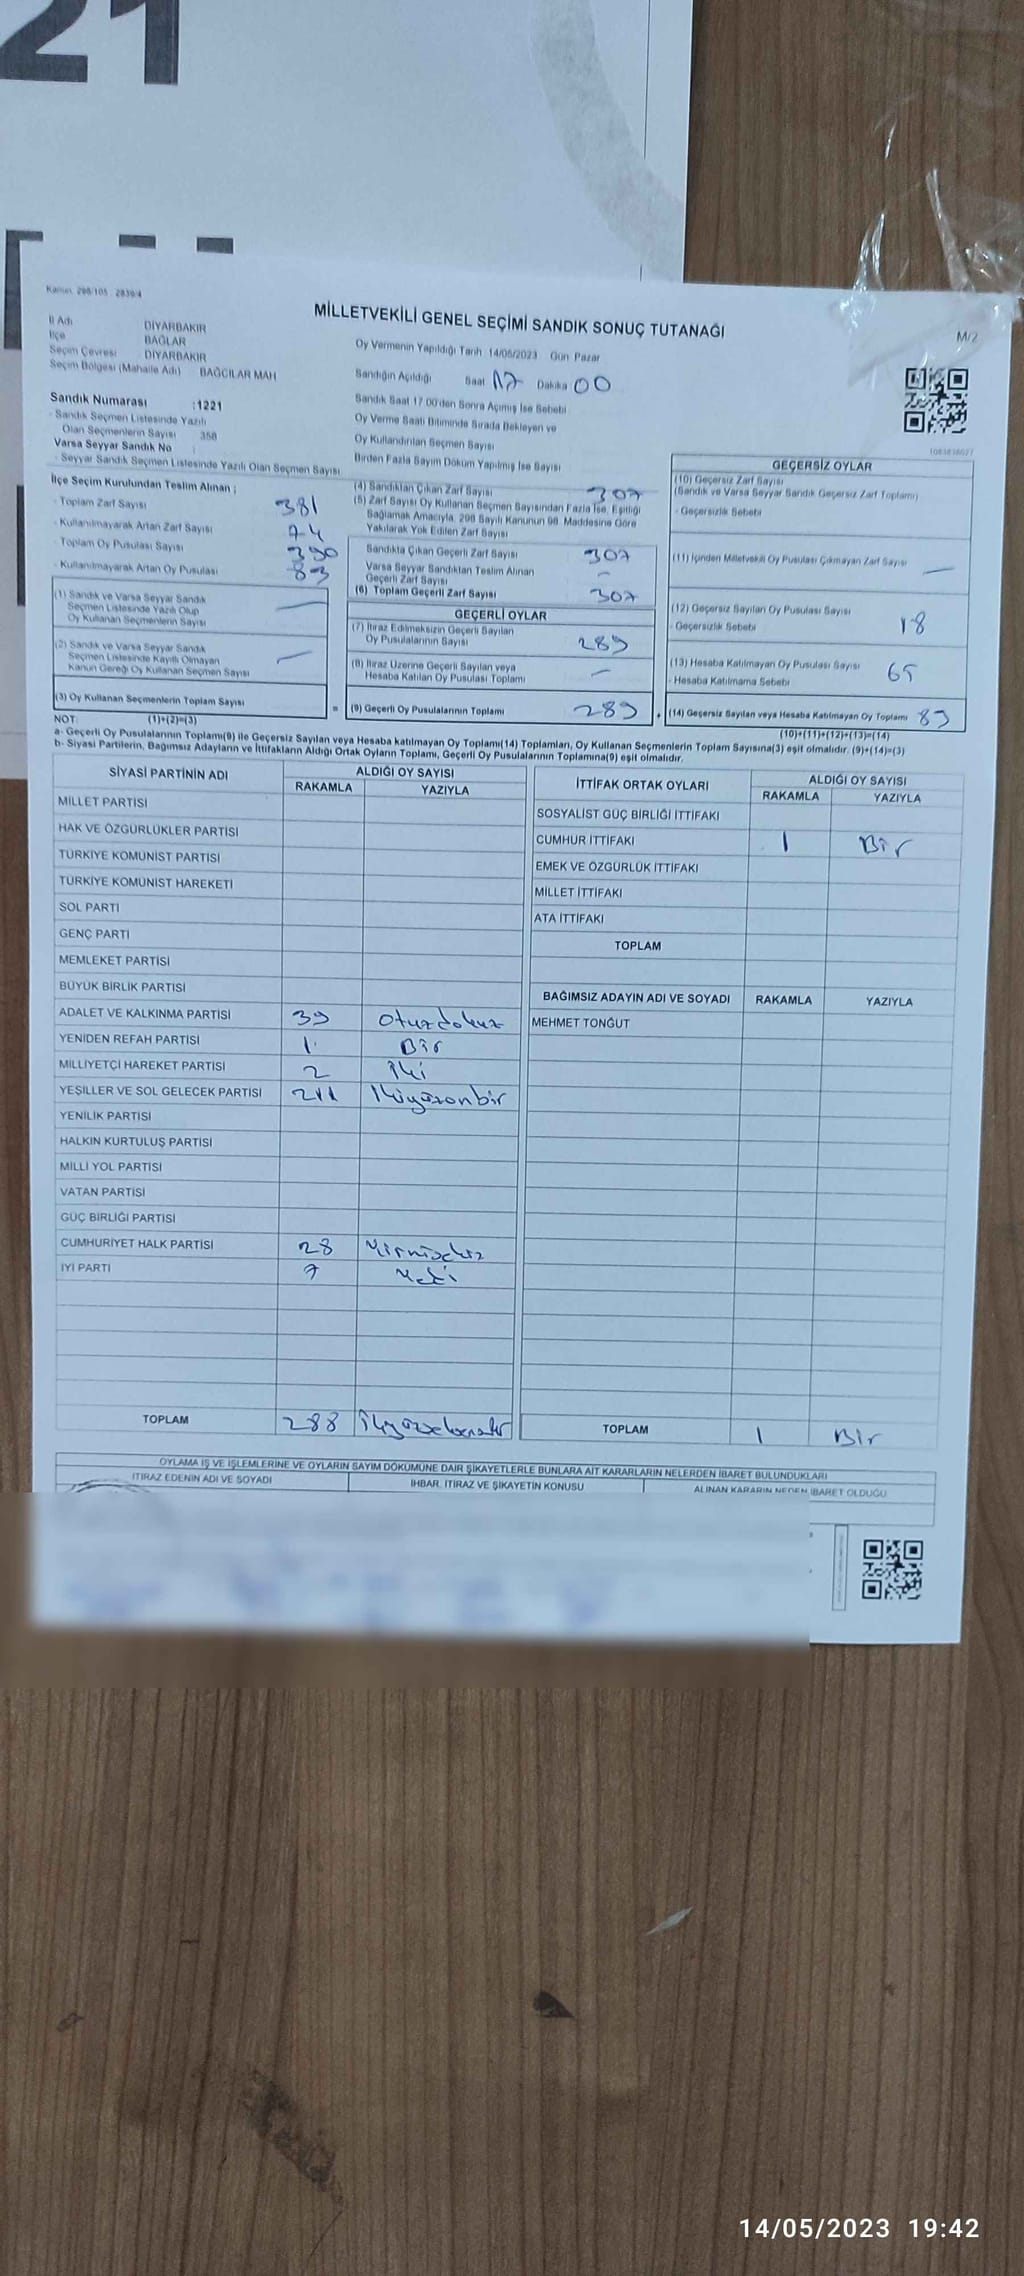 21
Kanun: 298/105 , 2839/4
MİLLETVEKİLİ GENEL SEÇİMİ SANDIK SONUÇ TUTANAĞI
M/2
İl Adı DİYARBAKIR
İlçe BAĞLAR
Seçim Çevresi DİYARBAKIR
Seçim Bölgesi (Mahalle Adı) BAĞCILAR MAH
Sandık Numarası :1221
- Sandık Seçmen Listesinde Yazılı
Olan Seçmenlerin Sayısı 358
Varsa Seyyar Sandık No
- Seyyar Sandık Seçmen Listesinde Yazılı Olan Seçmen Sayısı
Oy Vermenin Yapıldığı Tarih 14/05/2023 Gün Pazar
Sandığın Açıldığı Saat 17 Dakika 00
Sandık Saat 17.00'den Sonra Açılmış İse Sebebi
Oy Verme Saati Bitiminde Sırada Bekleyen ve
Oy Kullandırılan Seçmen Sayısı
Birden Fazla Sayım Döküm Yapılmış İse Sayısı
İlçe Seçim Kurulundan Teslim Alınan ;
- Toplam Zarf Sayısı 381
- Kullanılmayarak Artan Zarf Sayısı 74
- Toplam Oy Pusulası Sayısı 390
- Kullanılmayarak Artan Oy Pusulası 83
(1) Sandık ve Varsa Seyyar Sandık
Seçmen Listesinde Yazılı Olup
Oy Kullanan Seçmenlerin Sayısı —
(2) Sandık ve Varsa Seyyar Sandık
Seçmen Listesinde Kayıtlı Olmayan
Kanun Gereği Oy Kullanan Seçmen Sayısı —
(3) Oy Kullanan Seçmenlerin Toplam Sayısı =
(4) Sandıktan Çıkan Zarf Sayısı 307
(5) Zarf Sayısı Oy Kullanan Seçmen Sayısından Fazla İse, Eşitliği
Sağlamak Amacıyla, 298 Sayılı Kanunun 98. Maddesine Göre
Yakılarak Yok Edilen Zarf Sayısı
Sandıkta Çıkan Geçerli Zarf Sayısı 307
Varsa Seyyar Sandıktan Teslim Alınan
Geçerli Zarf Sayısı —
(6) Toplam Geçerli Zarf Sayısı 307
GEÇERLİ OYLAR
(7) İtiraz Edilmeksizin Geçerli Sayılan
Oy Pusulalarının Sayısı 289
(8) İtiraz Üzerine Geçerli Sayılan veya
Hesaba Katılan Oy Pusulası Toplamı —
(9) Geçerli Oy Pusulalarının Toplamı 289 +
GEÇERSİZ OYLAR
(10) Geçersiz Zarf Sayısı
(Sandık ve Varsa Seyyar Sandık Geçersiz Zarf Toplamı)
- Geçersizlik Sebebi
(11) İçinden Milletvekili Oy Pusulası Çıkmayan Zarf Sayısı —
(12) Geçersiz Sayılan Oy Pusulası Sayısı 18
- Geçersizlik Sebebi
(13) Hesaba Katılmayan Oy Pusulası Sayısı 65
- Hesaba Katılmama Sebebi
(14) Geçersiz Sayılan veya Hesaba Katılmayan Oy Toplamı 83
NOT: (1)+(2)=(3) (10)+(11)+(12)+(13)=(14)
a- Geçerli Oy Pusulalarının Toplamı(9) ile Geçersiz Sayılan veya Hesaba katılmayan Oy Toplamı(14) Toplamları, Oy Kullanan Seçmenlerin Toplam Sayısına(3) eşit olmalıdır. (9)+(14)=(3)
b- Siyasi Partilerin, Bağımsız Adayların ve İttifakların Aldığı Ortak Oyların Toplamı, Geçerli Oy Pusulalarının Toplamına(9) eşit olmalıdır.
SİYASİ PARTİNİN ADI ALDIĞI OY SAYISI
RAKAMLA YAZIYLA
MİLLET PARTİSİ
HAK VE ÖZGÜRLÜKLER PARTİSİ
TÜRKİYE KOMÜNİST PARTİSİ
TÜRKİYE KOMÜNİST HAREKETİ
SOL PARTİ
GENÇ PARTİ
MEMLEKET PARTİSİ
BÜYÜK BİRLİK PARTİSİ
ADALET VE KALKINMA PARTİSİ 39 Otuzdokuz
YENİDEN REFAH PARTİSİ 1 Bir
MİLLİYETÇİ HAREKET PARTİSİ 2 iki
YEŞİLLER VE SOL GELECEK PARTİSİ 211 İkiyüzonbir
YENİLİK PARTİSİ
HALKIN KURTULUŞ PARTİSİ
MİLLİ YOL PARTİSİ
VATAN PARTİSİ
GÜÇ BİRLİĞİ PARTİSİ
CUMHURİYET HALK PARTİSİ 28
İYİ PARTİ 7
TOPLAM 288
İTTİFAK ORTAK OYLARI ALDIĞI OY SAYISI
RAKAMLA YAZIYLA
SOSYALİST GÜÇ BİRLİĞİ İTTİFAKI
CUMHUR İTTİFAKI 1 Bir
EMEK VE ÖZGÜRLÜK İTTİFAKI
MİLLET İTTİFAKI
ATA İTTİFAKI
TOPLAM
BAĞIMSIZ ADAYIN ADI VE SOYADI RAKAMLA YAZIYLA
MEHMET TONĞUT
TOPLAM 1 Bir
OYLAMA İŞ VE İŞLEMLERİNE VE OYLARIN SAYIM DÖKÜMÜNE DAİR ŞİKAYETLERLE BUNLARA AİT KARARLARIN NELERDEN İBARET BULUNDUKLARI
İTİRAZ EDENİN ADI VE SOYADI İHBAR, İTİRAZ VE ŞİKAYETİN KONUSU ALINAN KARARIN NEDEN İBARET OLDUĞU
14/05/2023 19:42